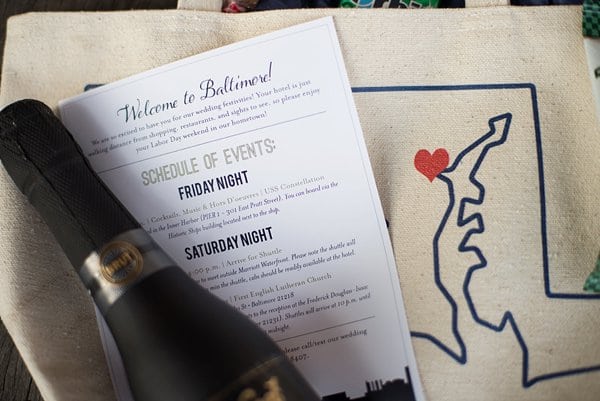 Welcome to Baltimore!
We are so excited to have you for our wedding festivities! Your hotel is just
walking distance from shopping, restaurants, and sights to see, so please enjoy
your Labor Day weekend in our hometown!
SCHEDULE OF EVENTS:
FRIDAY NIGHT
| Cocktails, Music & Hors D'oeuvres | USS Constellation
in the Inner Harbor (PIER 1 - 301 East Pratt Street). You can board via the
Historic Ships building located next to the ship.
SATURDAY NIGHT
:00 p.m. | Arrive for Shuttle
to meet outside Marriott Waterfront. Please note the shuttle will
miss the shuttle, cabs should be readily available at the hotel.
| First English Lutheran Church
St • Baltimore 21218
to the reception at the Frederick Douglass-Isaac
Shuttles will arrive at 10 p.m. until
midnight.
please call/text our wedding
6407.
BRUT